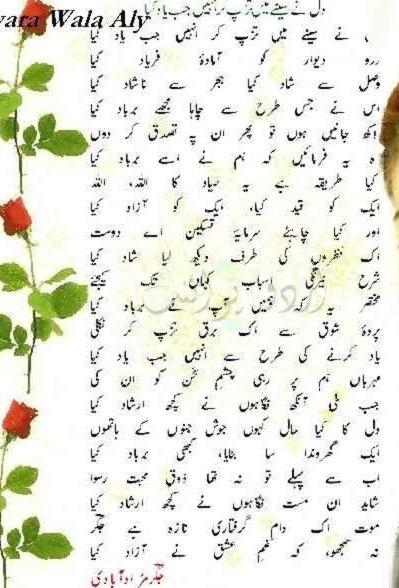 yara Wala Aly
دل نے سینے میں تڑپ کر انہیں جب یاد کیا
نے سینے میں تڑپ کر انہیں جب یاد کیا
در و دیوار کو آمادۂ فریاد کیا
وصل سے شاد کیا ہجر سے ناشاد کیا
اس نے جس طرح سے چاہا مجھے برباد کیا
لاکھ جانیں ہوں تو پھر ان پہ تصدق کر دوں
وہ یہ فرمائیں کہ ہم نے اسے برباد کیا
کیا طریقہ ہے یہ صیاد کا اللہ، اللہ
ایک کو قید کیا، ایک کو آزاد کیا
اور کیا چاہئے سرمایۂ تسکیں اے دوست
اک نظروں کی طرف دیکھ لیا شاد کیا
شرح نیرنگی اسباب کہاں تک کیجئے
مختصر یہ کہ ہمیں آپ نے برباد کیا
پردۂ شوق سے اک برق تڑپ کر نکلی
یاد کرنے کی طرح سے انہیں جب یاد کیا
مہرباں ہم پر رہی چشم سخن گو ان کی
جب ملی آنکھ نگاہوں نے کچھ ارشاد کیا
دل کا کیا حال کہوں جوش جنوں کے ہاتھوں
ایک گھروندا سا بنایا، کبھی برباد کیا
اب سے پہلے تو نہ تھا ذوق محبت رسوا
شاید ان مست نگاہوں نے کچھ ارشاد کیا
موت اک دام گرفتاری تازہ ہے جگر
نہ سمجھو، کہ غم عشق نے آزاد کیا
جگر مراد آبادی